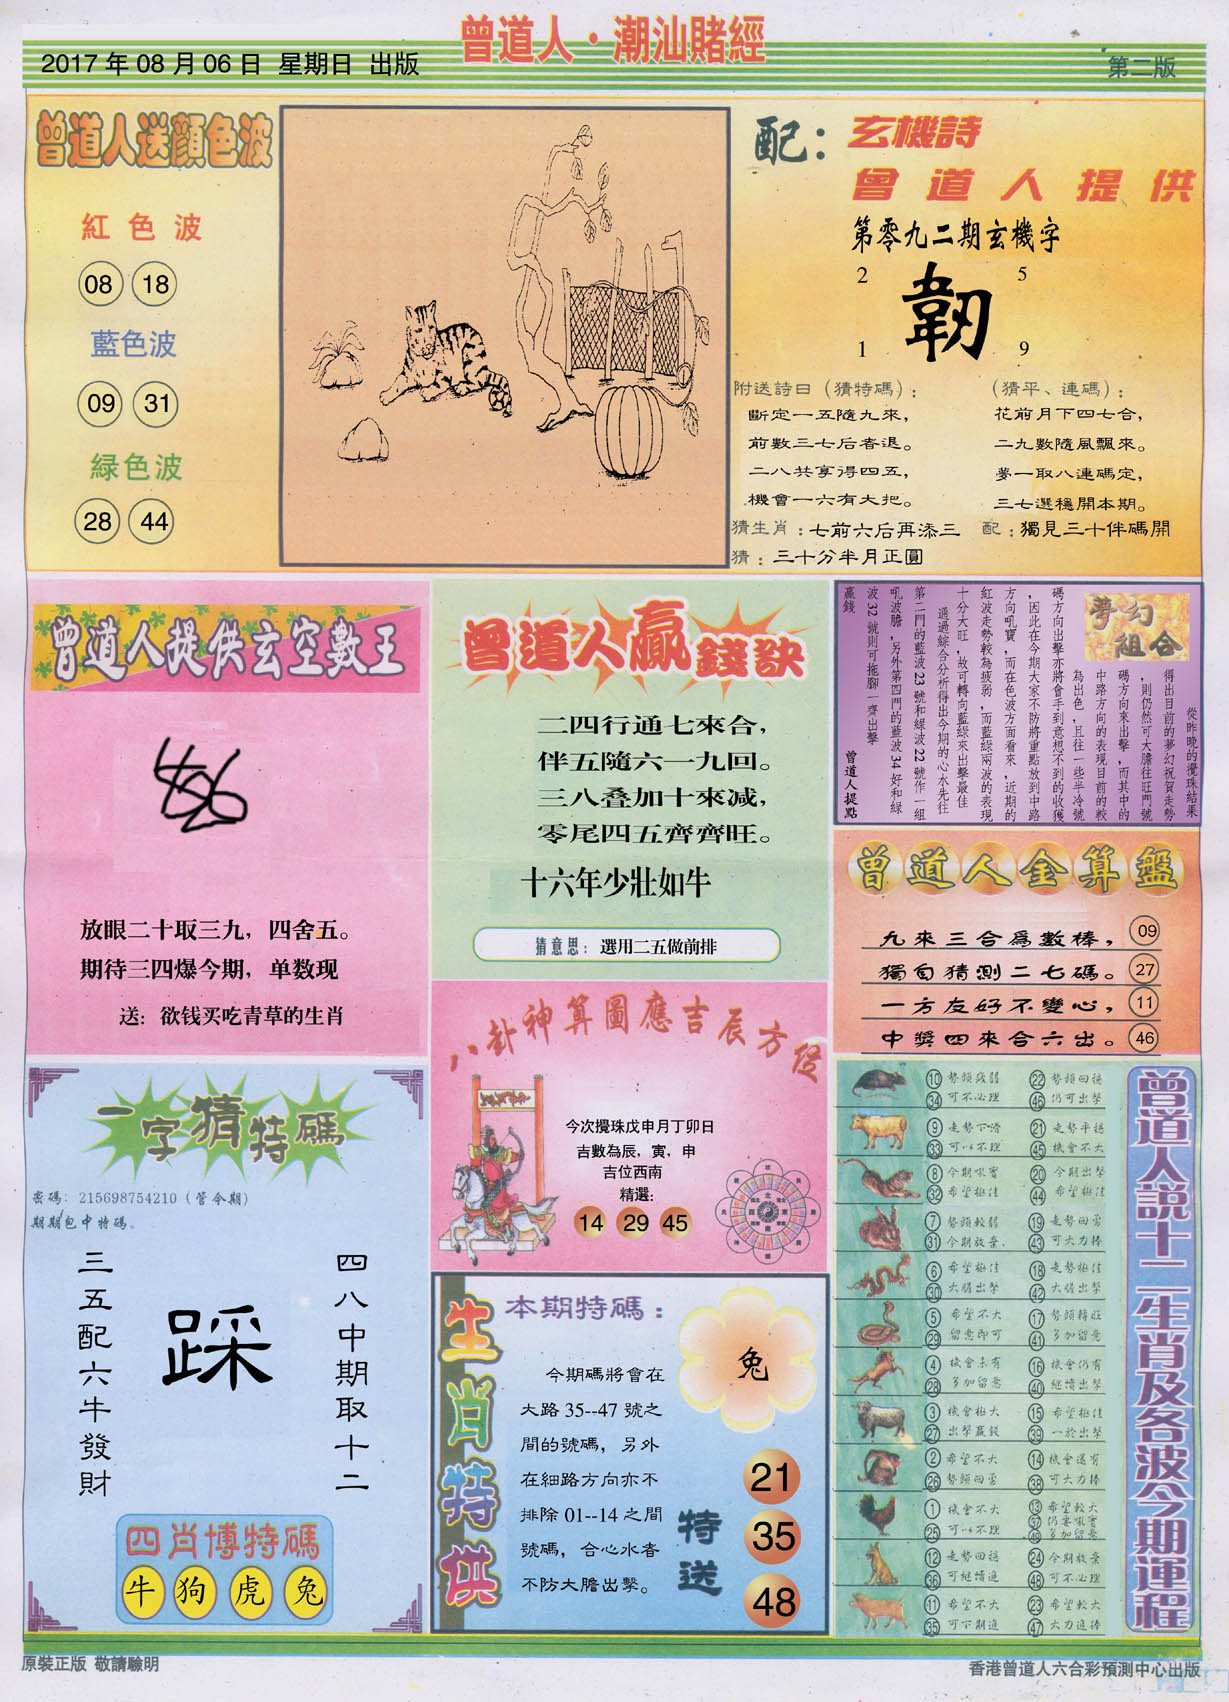 曾道人·潮汕賭經
2017年08月06日 星期日 出版
第二版
曾道人送顏色波
紅色波
08 18
藍色波
09 31
緑色波
28 44
配：玄機詩
曾道人提供
第零九二期玄機字
2 5
韌
1 9
附送詩曰（猜特碼）：
斷定一五隨九來，
前數三七后者退。
二八共享得四五，
機會一六有大把。
（猜平、連碼）：
花前月下四七合，
二九數隨風飄來。
夢一取八連碼定，
三七選穩開本期。
猜生肖：七前六后再添三
配：獨見三十伴碼開
猜：三十分半月正圓
曾道人提供玄空數王
放眼二十取三九，四舍五。
期待三四爆今期，单数现
送：欲钱买吃青草的生肖
曾道人贏錢訣
二四行通七來合，
伴五隨六一九回。
三八叠加十來減，
零尾四五齊齊旺。
十六年少壯如牛
猜意思：選用二五做前排
夢幻
組合
從昨晚的攪珠結果
得出目前的夢幻祝賀走勢
，則仍然可大膽往旺門號
碼方向來出擊，而其中的
中路方向的表現目前的較
為出色，且往一些半冷號
碼方向出擊亦將會手到意想不到的收獲
，因此在今期大家不防將重點放到中路
方向吼寶，而在色波方面看來，近期的
紅波走勢較為疲弱，而藍綠兩波的表現
十分大旺，故可轉向藍綠來出擊最佳
通過綜合分析得出今期的心水先往
第二門的藍波23號和綠波22號作一組
吼波膽，另外第四門的藍波34好和綠
波32號則可拖腳一齊出擊
贏錢
曾道人提點
曾道人金算盤
九來三合爲數棒， 09
獨自猜測二七碼。 27
一方友好不變心， 11
中獎四來合六出。 46
八卦神算圖應吉辰方位
今次攪珠戊申月丁卯日
吉數為辰，寅，申
吉位西南
精選：
14 29 45
一字猜特碼
密碼：215698754210（管今期）
期期包中特碼。
四八中期取十二
踩
三五配六牛發財
四肖博特碼
牛 狗 虎 兔
生肖特供
本期特碼：
兔
今期碼將會在
大路35--47號之
間的號碼，另外
在細路方向亦不
排除01--14之間
號碼，合心水者
不防大膽出擊。
特送
21
35
48
曾道人說十二生肖及各波今期運程
10 勢頭疲弱 22 勢頭回穩
34 可不必理 46 仍可出擊
9 走勢下滑 21 走勢平穩
33 可以不理 45 機會不大
8 今期吼寶 20 今期出擊
32 希望極佳 44 希望極佳
7 勢頭較弱 19 走勢回勇
31 今期放棄 43 可大力捧
6 希望極佳 18 走勢極佳
30 大膽出擊 42 大膽出擊
5 希望不大 17 勢頭轉旺
29 留意即可 41 多加留意
4 機會未有 16 機會仍有
28 多加留意 40 繼續出擊
3 機會極大 15 希望極佳
27 出擊贏錢 39 一於出擊
2 希望不大 14 機會還有
26 勢頭回勇 38 可大力捧
1 機會不大 13 希望較大
37 仍要吼實
25 可以不理 49 多加留意
12 走勢回穩 24 今期放棄
36 可繼續追 48 可不必理
11 希望不大 23 希望較大
35 可下期追 47 大力追捧
原裝正版 敬請驗明
香港曾道人六合彩預測中心出版